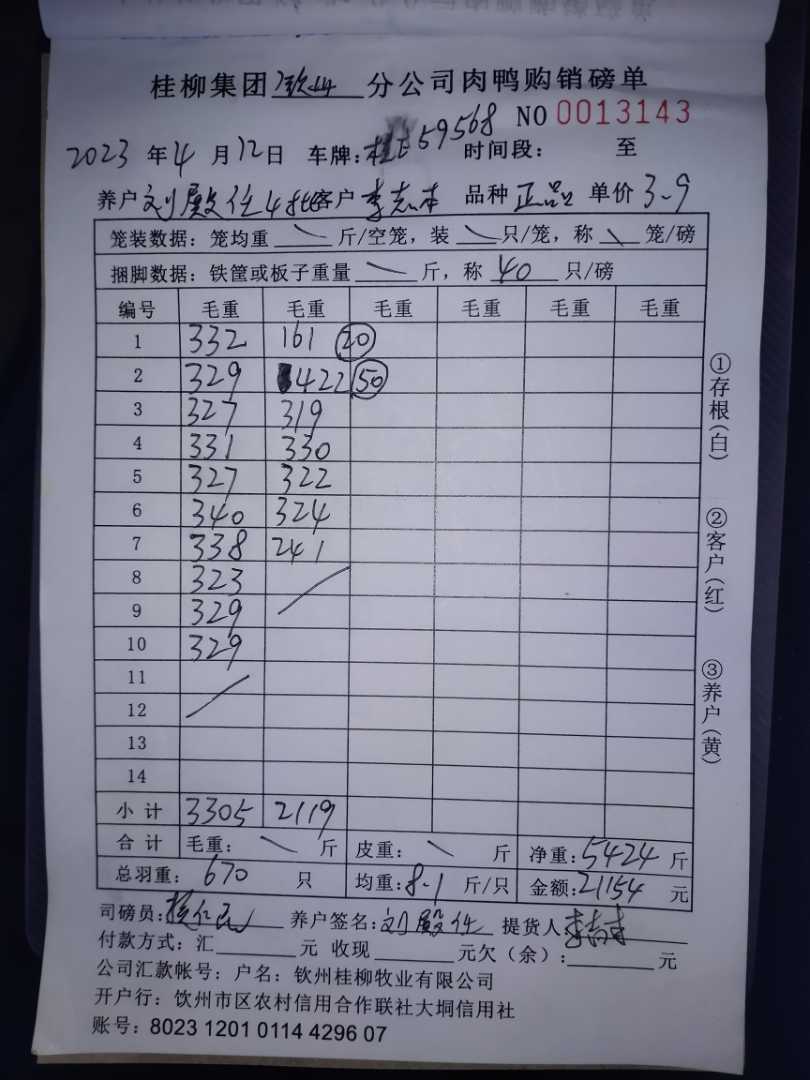 桂柳集团 钦州 分公司肉鸭购销磅单
NO 0013143
2023 年 4 月 12 日 车牌: 桂E59568 时间段: 至
养户 刘殿仕4批 客户 李志本 品种 正品 单价 3.9
笼装数据: 笼均重 \ 斤/空笼, 装 \ 只/笼, 称 \ 笼/磅
捆脚数据: 铁筐或板子重量 \ 斤, 称 40 只/磅
编号 毛重 毛重 毛重 毛重 毛重 毛重
1 332 161 ⑳
2 329 422 ㊿
3 327 319
4 331 330
5 327 322
6 340 324
7 338 241
8 323
9 329
10 329
11
12
13
14
小计 3305 2119
合计 毛重: \ 斤 皮重: \ 斤 净重: 5424 斤
总羽重: 670 只 均重: 8.1 斤/只 金额: 21154 元
司磅员: 养户签名: 刘殿仕 提货人
付款方式: 汇 元 收现 元欠（余）: 元
公司汇款帐号: 户名: 钦州桂柳牧业有限公司
开户行: 饮州市区农村信用合作联社大垌信用社
账号: 8023 1201 0114 4296 07
①存根(白)
②客户(红)
③养户(黄)